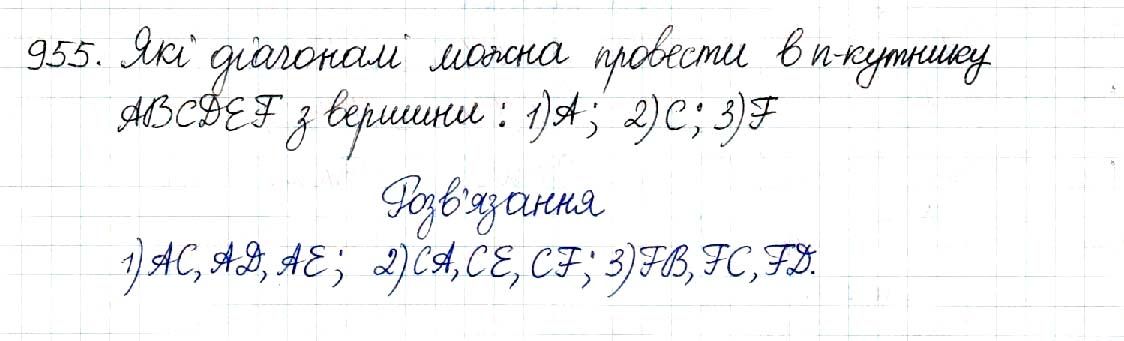 955. Які діагоналі можна провести в n-кутнику
ABCDEF з вершини: 1) A; 2) C; 3) F
Розв'язання
1) AC, AD, AE; 2) CA, CE, CF; 3) FB, FC, FD.